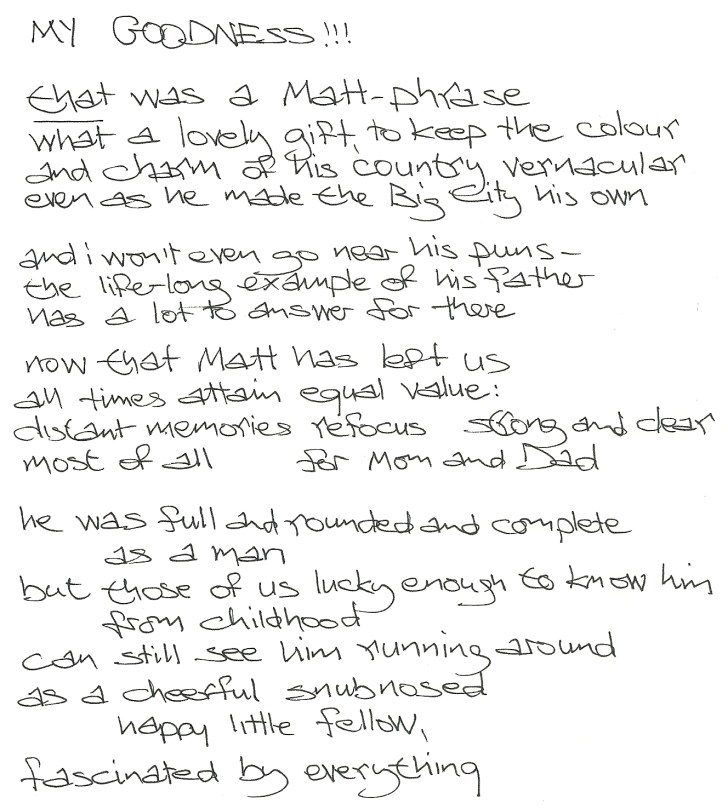 MY GOODNESS!!!
that was a Matt-phrase
what a lovely gift, to keep the colour
and charm of his country vernacular
even as he made the Big City his own
and i won't even go near his puns-
the life-long example of his father
has a lot to answer for there
now that Matt has left us
all times attain equal value:
distant memories refocus strong and clear
most of all for Mom and Dad
he was full and rounded and complete
as a man
but those of us lucky enough to know him
from childhood
can still see him running around
as a cheerful snubnosed
happy little fellow,
fascinated by everything